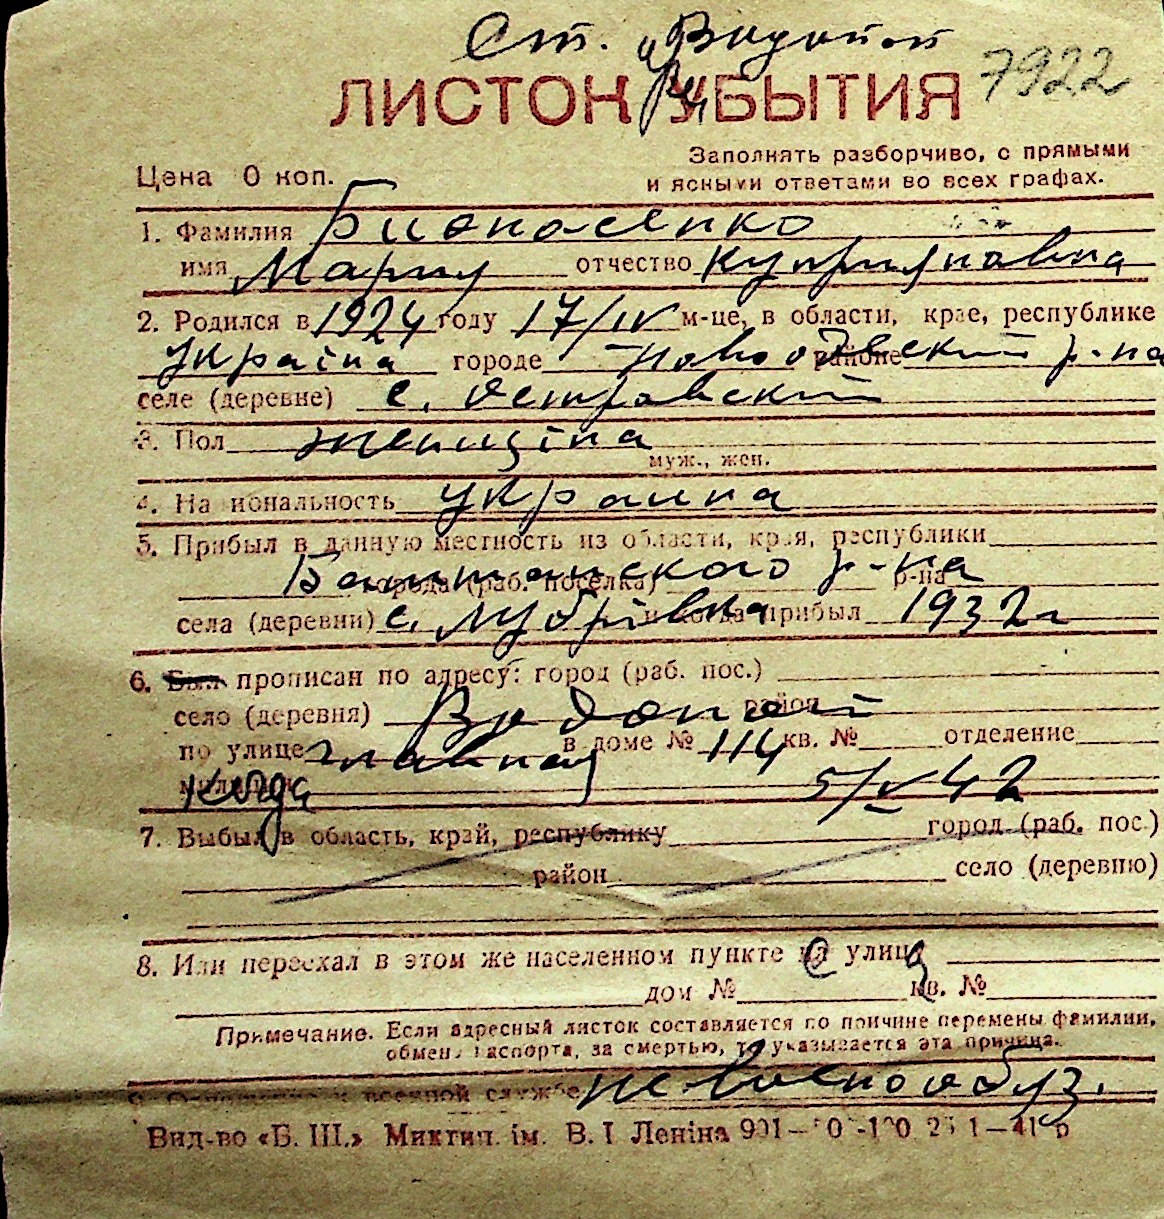 Ст. Водопой
7922
ЛИСТОК УБЫТИЯ
Заполнять разборчиво, с прямыми
Цена 0 коп. и ясными ответами во всех графах.
1. Фамилия
имя Мария отчество Куприяновна
2. Родился в 1924 году 17/IV м-це, в области, крае, республике
Україна городе Новоодеский районе р-на
селе (деревне) с.
3. Пол женщіна
муж., жен.
4. Национальность украинка
5. Прибыл в данную местность из области, края, республики
Баштанского р-на города (раб. поселка) р-на
села (деревни) с. и когда прибыл 1932 г
6. Был прописан по адресу: город (раб. пос.)
село (деревня) Водопой район
по улице главная в доме № 114 кв. № отделение
милиции когда 5/V 42
7. Выбыл в область, край, республику город (раб. пос.)
район село (деревню)
8. Или переехал в этом же населенном пункте на улицу
дом № кв. №
Примечание. Если адресный листок составляется по причине перемены фамилии,
обмена паспорта, за смертью, то указывается эта причина.
9. Отношение к военной службе не военнообяз.
Вид-во «Б. Ш.» Миктип. ім. В. І Леніна